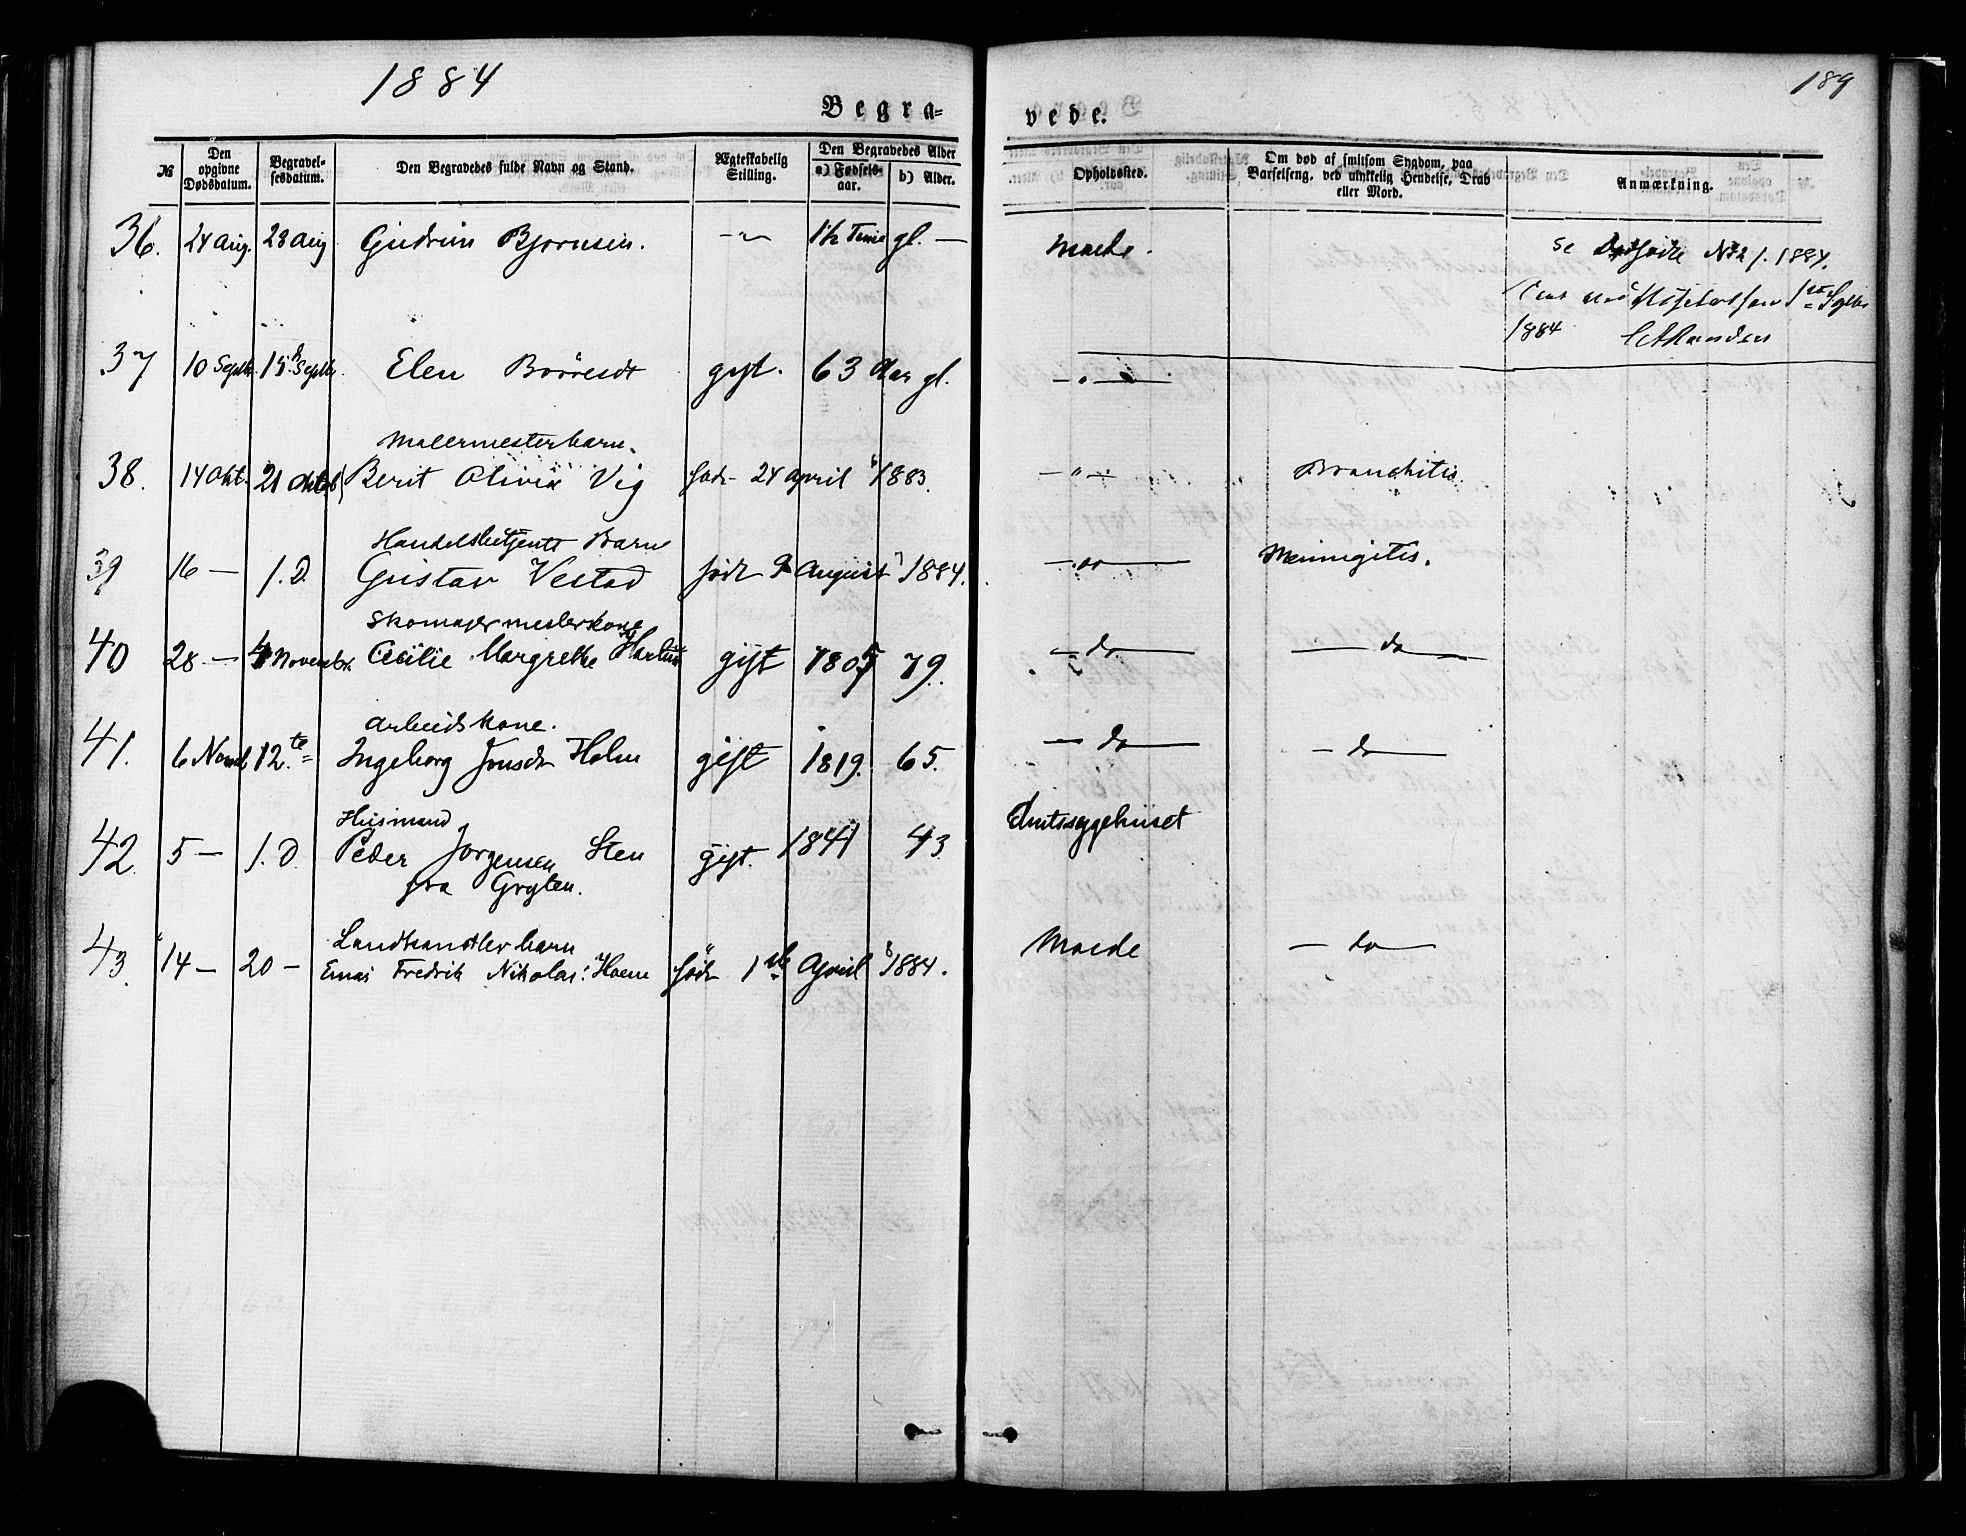 1884
189
Begra=
vede.
№ Den opgivne Dødsdatum. Begravelsesdatum. Den Begravedes fulde Navn og Stand. Ægteskabelig Stilling. Den Begravedes Alder a) Fødselsaar. b) Alder. Opholdssted. Om død af smitsom Sygdom, paa Barselseng, ved ulykkelig Hendelse, Drab eller Mord. Anmærkning.
36. 24 Aug. 28 Aug Gudrun Bjørnsen. -"- 1½ Time gl. — Molde. se Dødfødte No 2/. 1884.
1ste Septbr
1884
37 10 Septbr. 15 Septbr Elen gift. 63 Aar gl. —"—
Malermesterbarn.
38. 14 Okt. 21 Oktob Berit Olivia Vig født 24 April 1883. —"— Bronchitis.
Handelsbetjents Barn
39 16 — 1. D. Gustav Vestad født 9 August 1884. —"— Mennigitis.
Skomagermesterkone
40 28 — 4 Novembr. Cecilie Margrethe gift 1805 79. — do — — do —
Arbeidskone.
41. 6 Novemb 12te Ingeborg Jonsdr Holm gift 1819. 65. — do — — do —
Husmand Amtssygehuset
42. 5 — 1. D. Peder Jørgensen Sten gift. 1841 43
fra Gryten.
Landhandler barn
43. 14 — 20 — Fredrik Nikolai Hoem født 1ste April 1884. Molde — do —